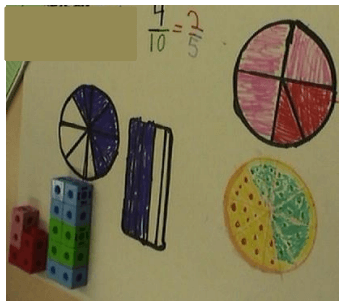 4/10 = 2/5